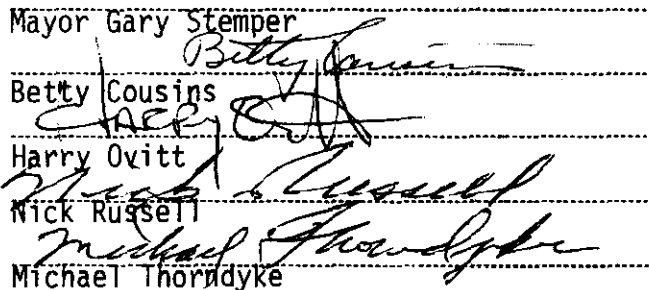 Mayor Gary Stemper
Betty Cousins
Betty Cousins
Harry Ovitt
Harry Ovitt
Nick Russell
Nick Russell
Michael Thorndyke
Michael Thorndyke